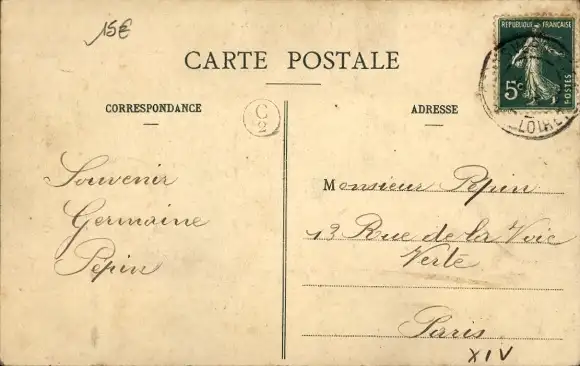 15€
CARTE POSTALE
REPUBLIQUE FRANÇAISE
5c
POSTES
LOIRET
CORRESPONDANCE
ADRESSE
Souvenir
Germaine
Pepin
Monsieur Pepin
13 Rue de la Voie
Verte
Paris
XIV